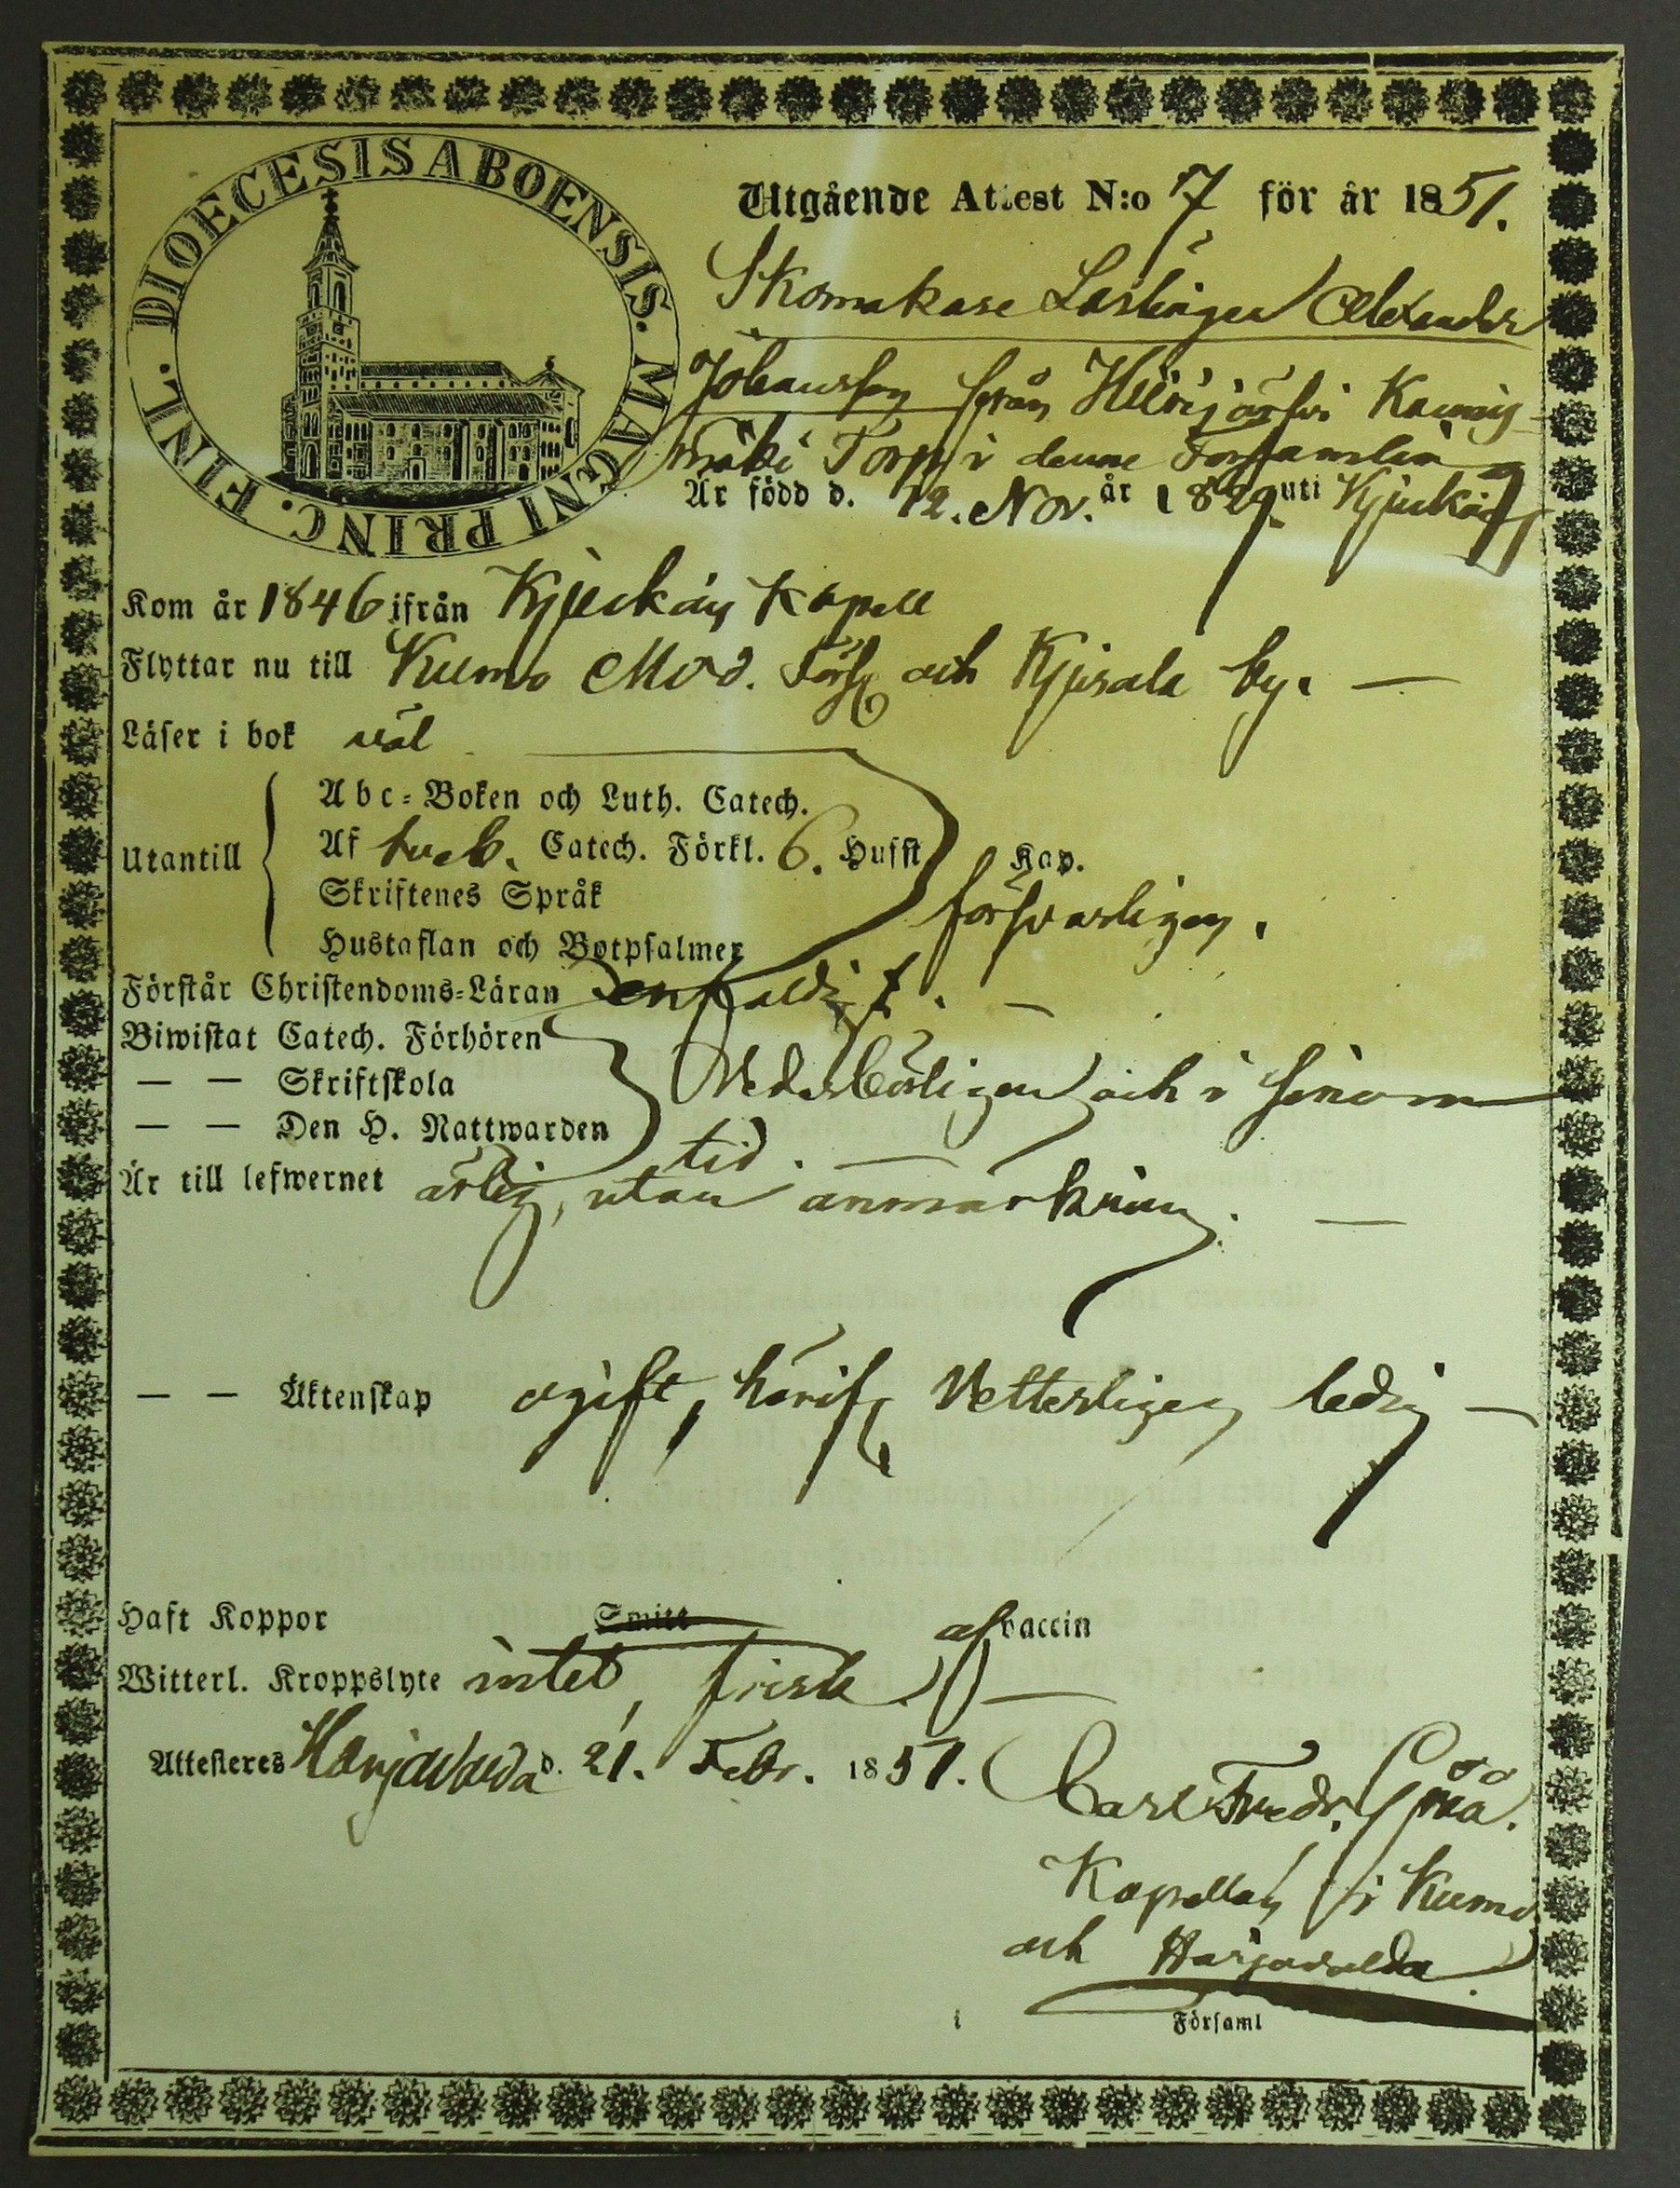 DIOECESIS ABOENSIS. MAGNI PRINC. FINL.
Utgående Attest N:o 7 för år 1851.
Skomakare Lärlingen Alexander
Johansson från Hiirijärvi
mäki Torp i denne Församling
Är född d. 12. Nov. år 1829 uti Kjuikais
Kom år 1846 ifrån Kjuikais Kapell
Flyttar nu till Kumo Mod. Förs: och Kjusala by. —
Läser i bok väl
Utantill
Abc-Boken och Luth. Catech.
Af Catech. Förkl. 6. Hufst Kap.
Skriftenes Språk försvarligen.
Hustaflan och Botpsalmer
Förstår Christendoms-Läran enfaldigt. —
Biwistat Catech. Förhören
— — Skriftskola Vederbörligen och i sinom
— — Den H. Nattwarden tid. —
Är till lefwernet ärlig, utan anmärkning. —
— — Äktenskap ogift, härifr Vetterligen ledig —
Haft Koppor Smitt af vaccin
Witterl. Kroppslyte intet, frisk —
Attesteras Harjavalda d. 21. Febr. 1851. Carl Fredr.
Kapellan i Kumo
och Harjavalda
i Församl